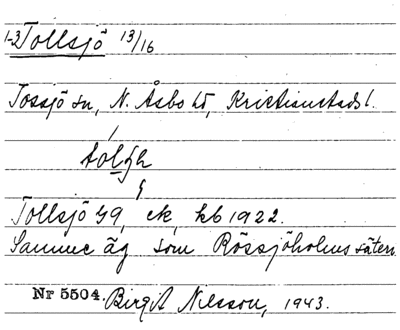 1-2 Tollsjö 13/16
Tossjö sn, N. Åsbo hd, Kristianstads l.
Tollsjö 49, ek kb 1922.
Samme äg som Rössjöholms säteri
Nr 5504. Birgit Nilsson, 1943.